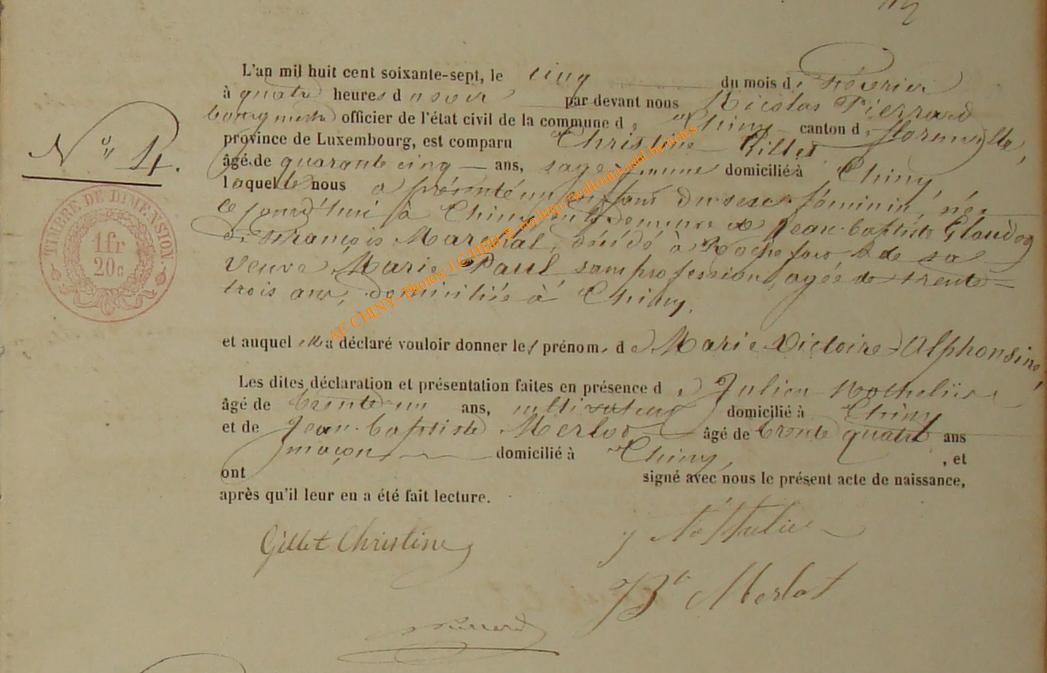 L'an mil huit cent soixante-sept, le cinq du mois de Février
à quatre heures du soir par devant nous Nicolas Pierrard
bourgmestre officier de l'état civil de la commune de Chiny canton de Florenville,
province de Luxembourg, est comparu Christine Gillet
âgé de quarante cinq ans, sage femme domicilié à Chiny,
N° 4.
laquelle nous a présenté un enfant du sexe féminin, née
ce jourd'hui à Chiny en la demeure de Jean-Baptiste Glaudot
de François Maréchal, décédé à Rochefort & de sa
veuve Marie Paul, sans profession, agée de trente-
trois ans, domiciliée à Chiny,
TIMBRE DE DIMENSION
1 fr
20 c
et auquel elle a déclaré vouloir donner les prénoms de Marie-Victoire-Alphonsine,
Les dites déclaration et présentation faites en présence de Julien
âgé de trente-un ans, cultivateur domicilié à Chiny
et de Jean-Baptiste Merlot âgé de trente quatre ans
maçon domicilié à Chiny, , et
ont signé avec nous le présent acte de naissance,
après qu'il leur en a été fait lecture.
Gillet Christine
JBte Merlot
Pierrard